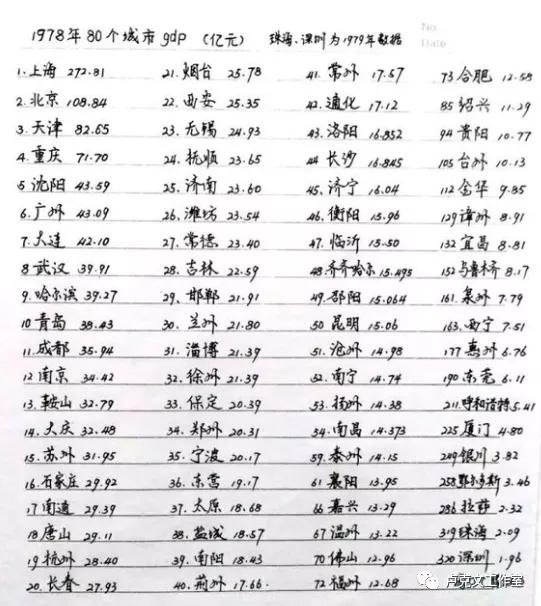 No.
Date.
1978年80个城市gdp (亿元) 珠海、深圳为1979年数据
1.上海 272.81
2.北京 108.84
3.天津 82.65
4.重庆 71.70
5 沈阳 43.59
6.广州 43.09
7.大连 42.10
8 武汉 39.91
9.哈尔滨 39.27
10 青岛 38.43
11.成都 35.94
12 南京 34.42
13.鞍山 32.79
14.大庆 32.48
15.苏州 31.95
16.石家庄 29.92
17 南通 29.39
18 唐山 29.11
19 杭州 28.40
20.长春 27.93
21.烟台 25.78
22.西安 25.35
23.无锡 24.93
24.抚顺 23.65
25.济南 23.60
26.潍坊 23.54
27.常德 23.40
28.吉林 22.59
29.邯郸 21.91
30.兰州 21.80
31.淄博 21.39
32.徐州 21.39
33.保定 20.39
34.郑州 20.31
35.宁波 20.17
36.东营 19.17
37.太原 18.68
38.盐城 18.57
39.南阳 18.43
40.荆州 17.66
41.常州 17.57
42.通化 17.12
43.洛阳 16.852
44.长沙 16.845
45.济宁 16.04
46.衡阳 15.96
47.临沂 15.50
48.齐齐哈尔 15.495
49.邵阳 15.064
50 昆明 15.06
51.沧州 14.98
52.南宁 14.74
53.扬州 14.38
54.南昌 14.373
59.泰州 14.15
61 襄阳 13.95
66 嘉兴 13.29
67 温州 13.22
70 佛山 12.96
72 福州 12.68
73 合肥 12.58
85 绍兴 11.29
94 贵阳 10.77
105 台州 10.13
112 金华 9.85
129 漳州 8.91
132 宜昌 8.81
152 乌鲁木齐 8.17
161.泉州 7.79
163.西宁 7.51
177 惠州 6.76
190 东莞 6.11
211.呼和浩特 5.41
225 厦门 4.80
249 银川 3.82
258 鄂尔多斯 3.46
286 拉萨 2.32
319 珠海 2.09
320 深圳 1.96
卢克文工作室